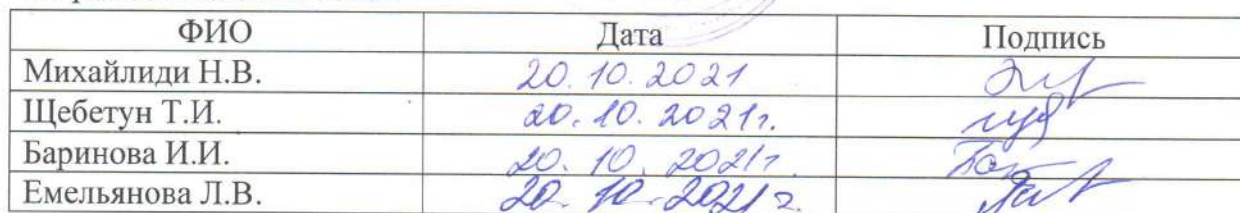 ФИО Дата Подпись
Михайлиди Н.В. 20.10.2021
Щебетун Т.И. 20.10.2021г.
Баринова И.И. 20.10.2021г
Емельянова Л.В. 20.10.2021г.